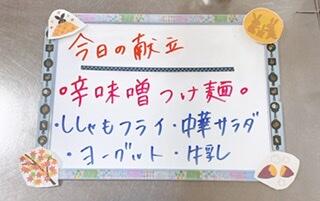 今日の献立
°辛味噌つけ麺°
・ししゃもフライ・中華サラダ
・ヨーグルト・牛乳